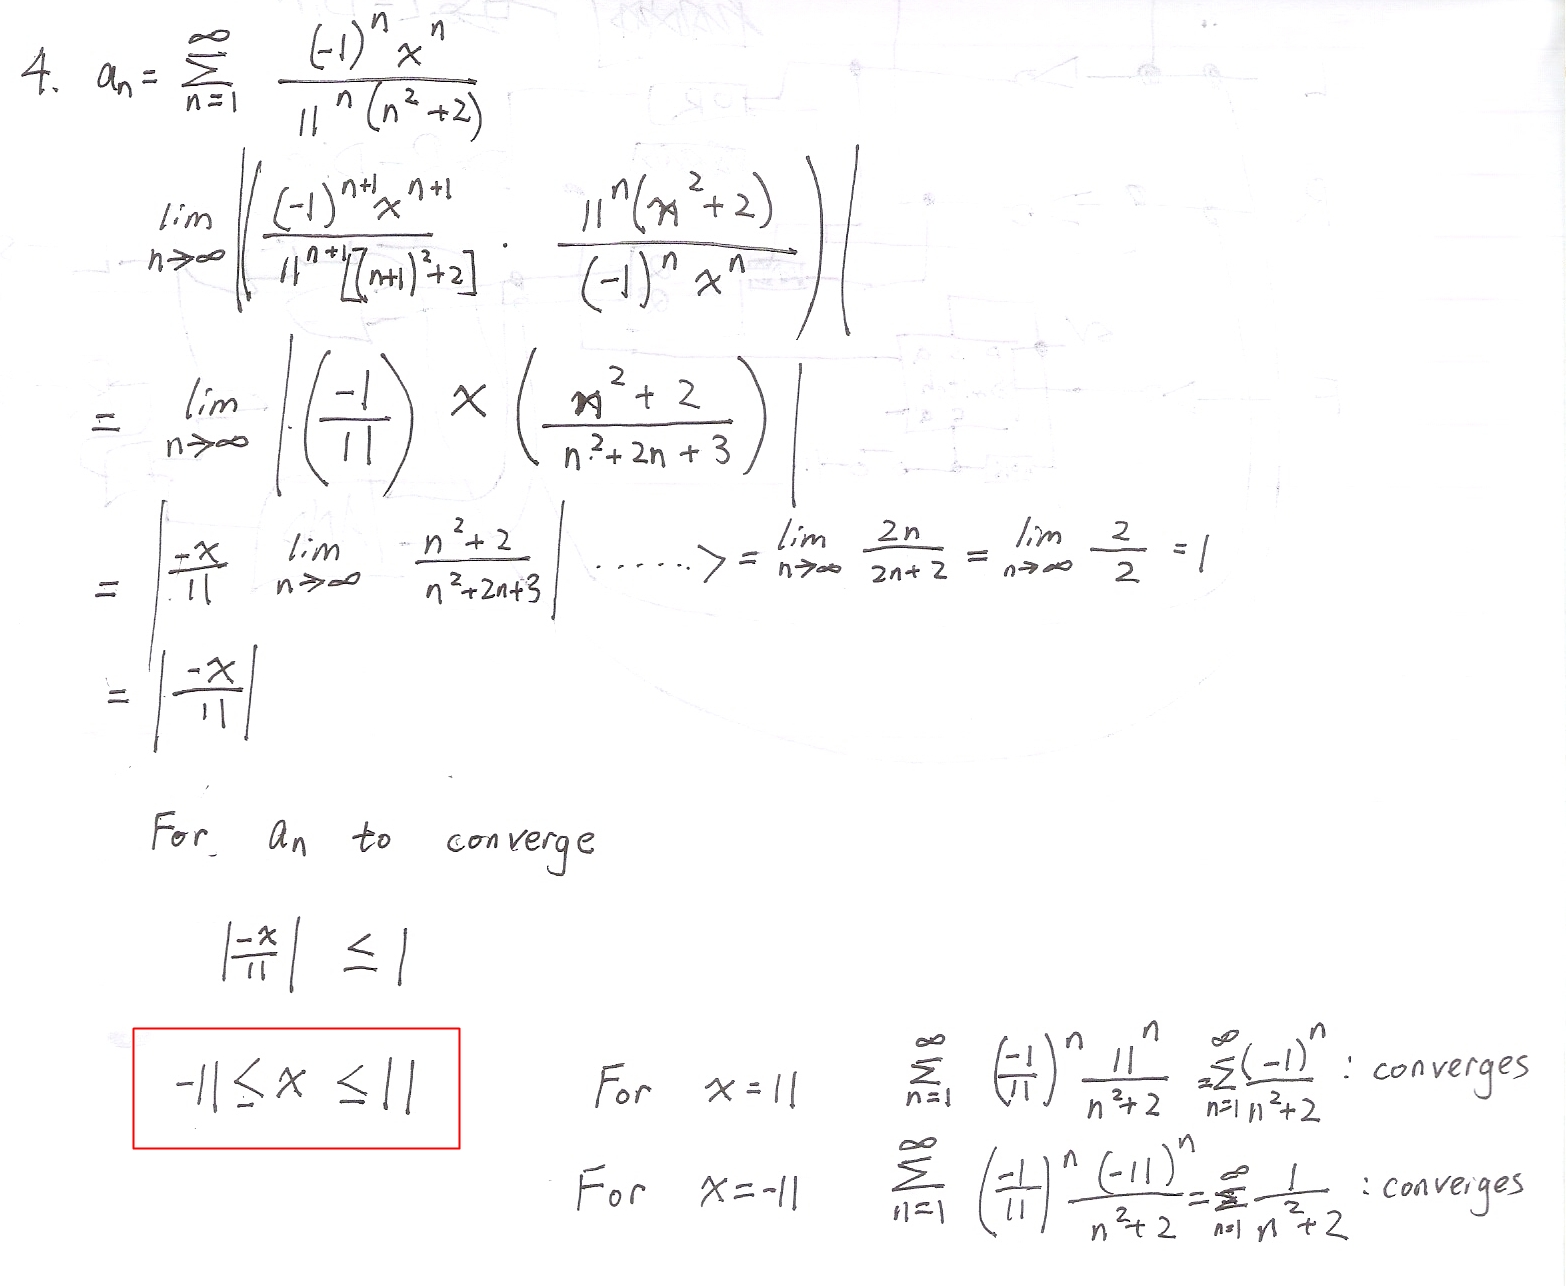 4. aₙ = ∑_{n=1}^{∞} \frac{(-1)^n x^n}{11^n (n^2+2)}
lim_{n→∞} |( \frac{(-1)^{n+1} x^{n+1}}{11^{n+1}[(n+1)^2+2]} · \frac{11^n (n^2+2)}{(-1)^n x^n} )|
= lim_{n→∞} | (\frac{-1}{11}) x (\frac{n^2+2}{n^2+2n+3}) |
= | \frac{-x}{11} lim_{n→∞} \frac{n^2+2}{n^2+2n+3} | ......> = lim_{n→∞} \frac{2n}{2n+2} = lim_{n→∞} \frac{2}{2} = 1
= | \frac{-x}{11} |
For aₙ to converge
| \frac{-x}{11} | ≤ 1
-11 ≤ x ≤ 11
For x = 11 ∑_{n=1}^{∞} (\frac{-1}{11})^n \frac{11^n}{n^2+2} = ∑_{n=1}^{∞} \frac{(-1)^n}{n^2+2} : converges
For x = -11 ∑_{n=1}^{∞} (\frac{-1}{11})^n \frac{(-11)^n}{n^2+2} = ∑_{n=1}^{∞} \frac{1}{n^2+2} : converges